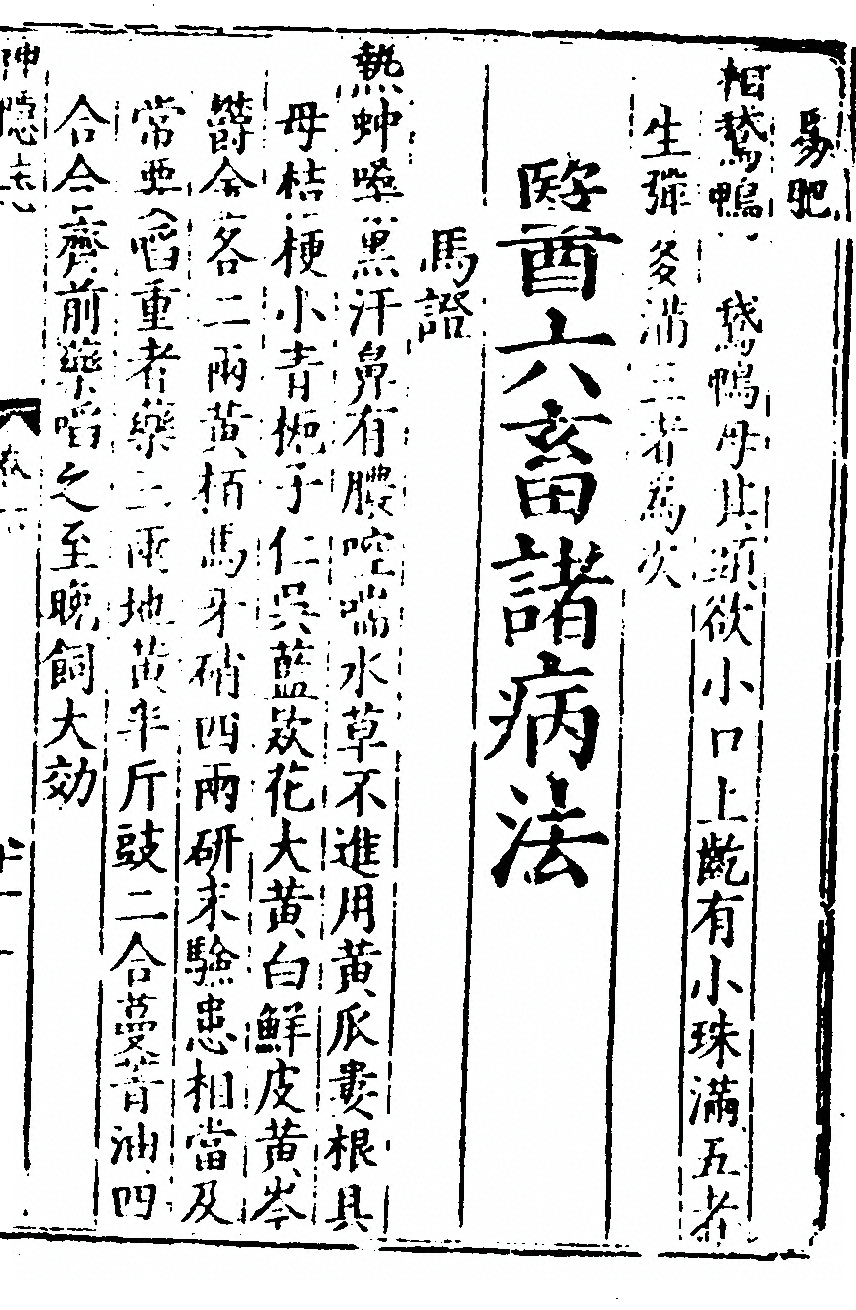 易肥
相鵝鴨 鵝鴨母其頭欲小口上齕有小珠滿五者
生彈多滿三者為次
醫酋六畜諸病法
馬證
熱蚛嗓黑汗鼻有膿啌喘水草不進用黃瓜蔞根具
母桔梗小青梔子仁吳藍欵花大黃白鮮皮黃岑
欝金各二兩黃栢馬牙硝四兩研末驗患相當及
常要啗重者藥三兩地黃半斤豉二合蔓菁油四
合合齋前藥啗之至晚飼大効
神隱志